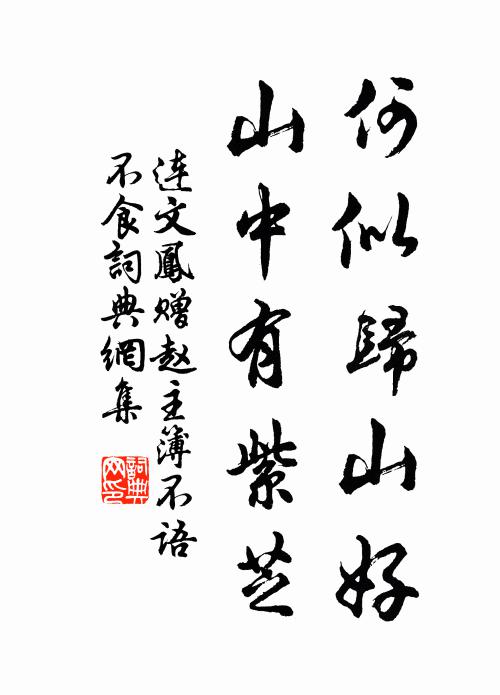 何似歸山好
山中有紫芝
连文鳳赠赵主簿不语
不食詞典網集
詞典網印